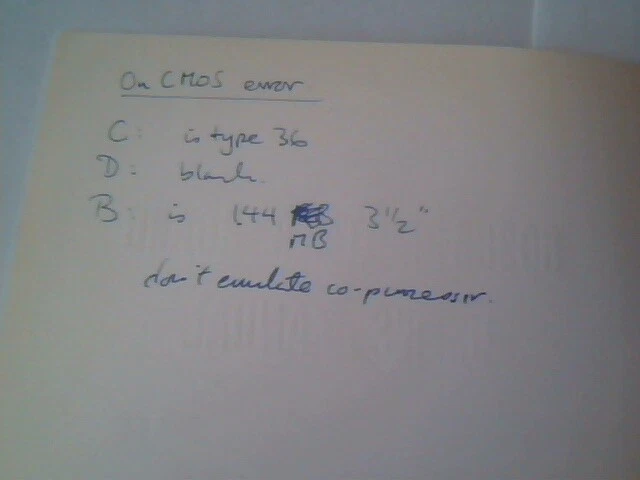 On CMOS error
C: is type 36
D: blank.
B: is 1.44 MB 3½"
don't emulate co-processor.